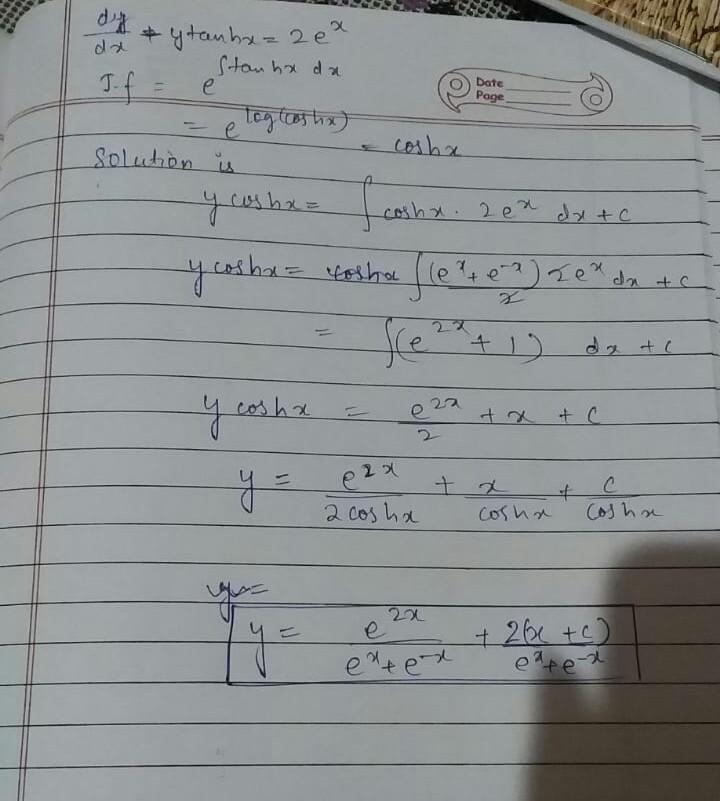 dy/dx + y tan hx = 2e^x
I.f = e^∫tan hx dx
Date
Page
= e^log(cos hx) = cos hx
Solution is
y cos hx = ∫ cos hx . 2e^x dx + c
y cos hx = ∫ (e^x + e^-x)/2 2e^x dx + c
= ∫(e^2x + 1) dx + c
y cos hx = e^2x/2 + x + c
y = e^2x/2 cos hx + x/cos hx + c/cos hx
y = e^2x/e^x + e^-x + 2(x + c)/e^x + e^-x